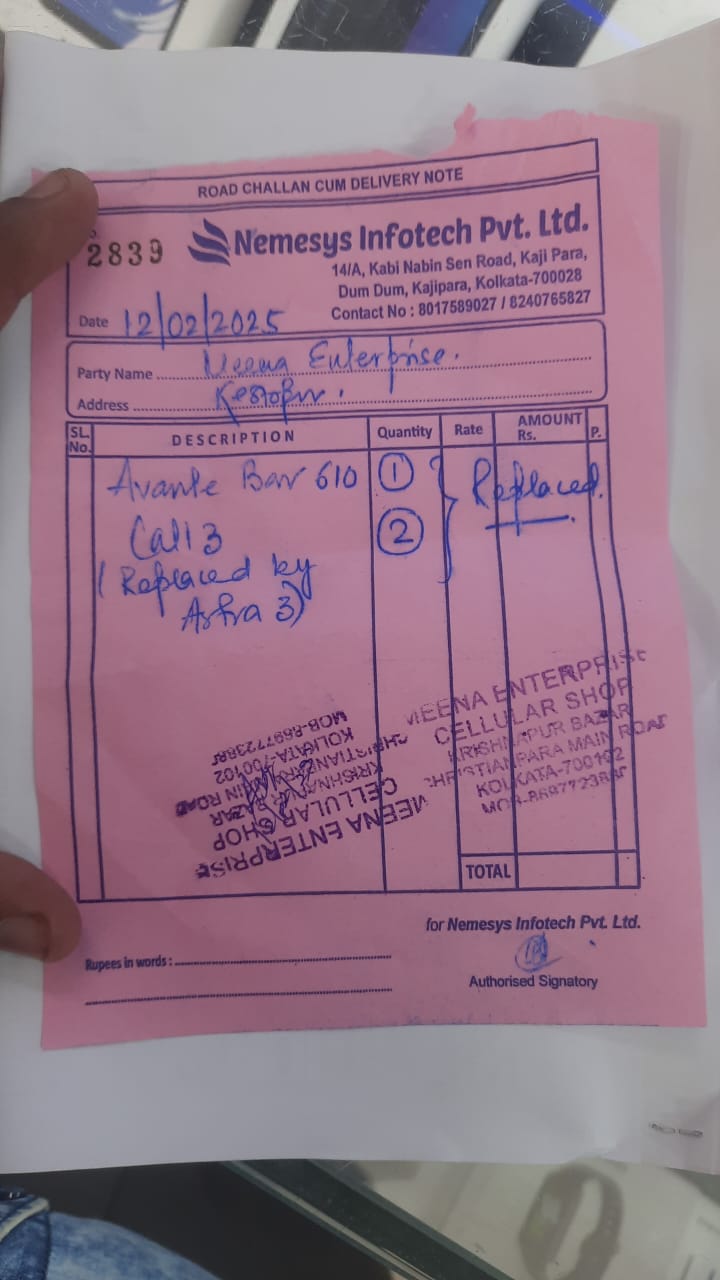 ROAD CHALLAN CUM DELIVERY NOTE
2839
Nemesys Infotech Pvt. Ltd.
14/A, Kabi Nabin Sen Road, Kaji Para,
Dum Dum, Kajipara, Kolkata-700028
Contact No : 8017589027 / 8240765827
Date 12/02/2025
Party Name Meena Enterprise.
Address Kestopur.
SL. No. DESCRIPTION Quantity Rate AMOUNT Rs. P.
Avante Bar 610 1 Replaced.
Cali 3 2
(Replaced by
Astra 3)
MEENA ENTERPRISE
CELLULAR SHOP
KRISHNAPUR BAZAR
CHRISTIANPARA MAIN ROAD
KOLKATA-700102
MOB-8697723885
MEENA ENTERPRISE
CELLULAR SHOP
KRISHNAPUR BAZAR
CHRISTIANPARA MAIN ROAD
KOLKATA-700102
MOB-8697723885
TOTAL
for Nemesys Infotech Pvt. Ltd.
Rupees in words :
Authorised Signatory